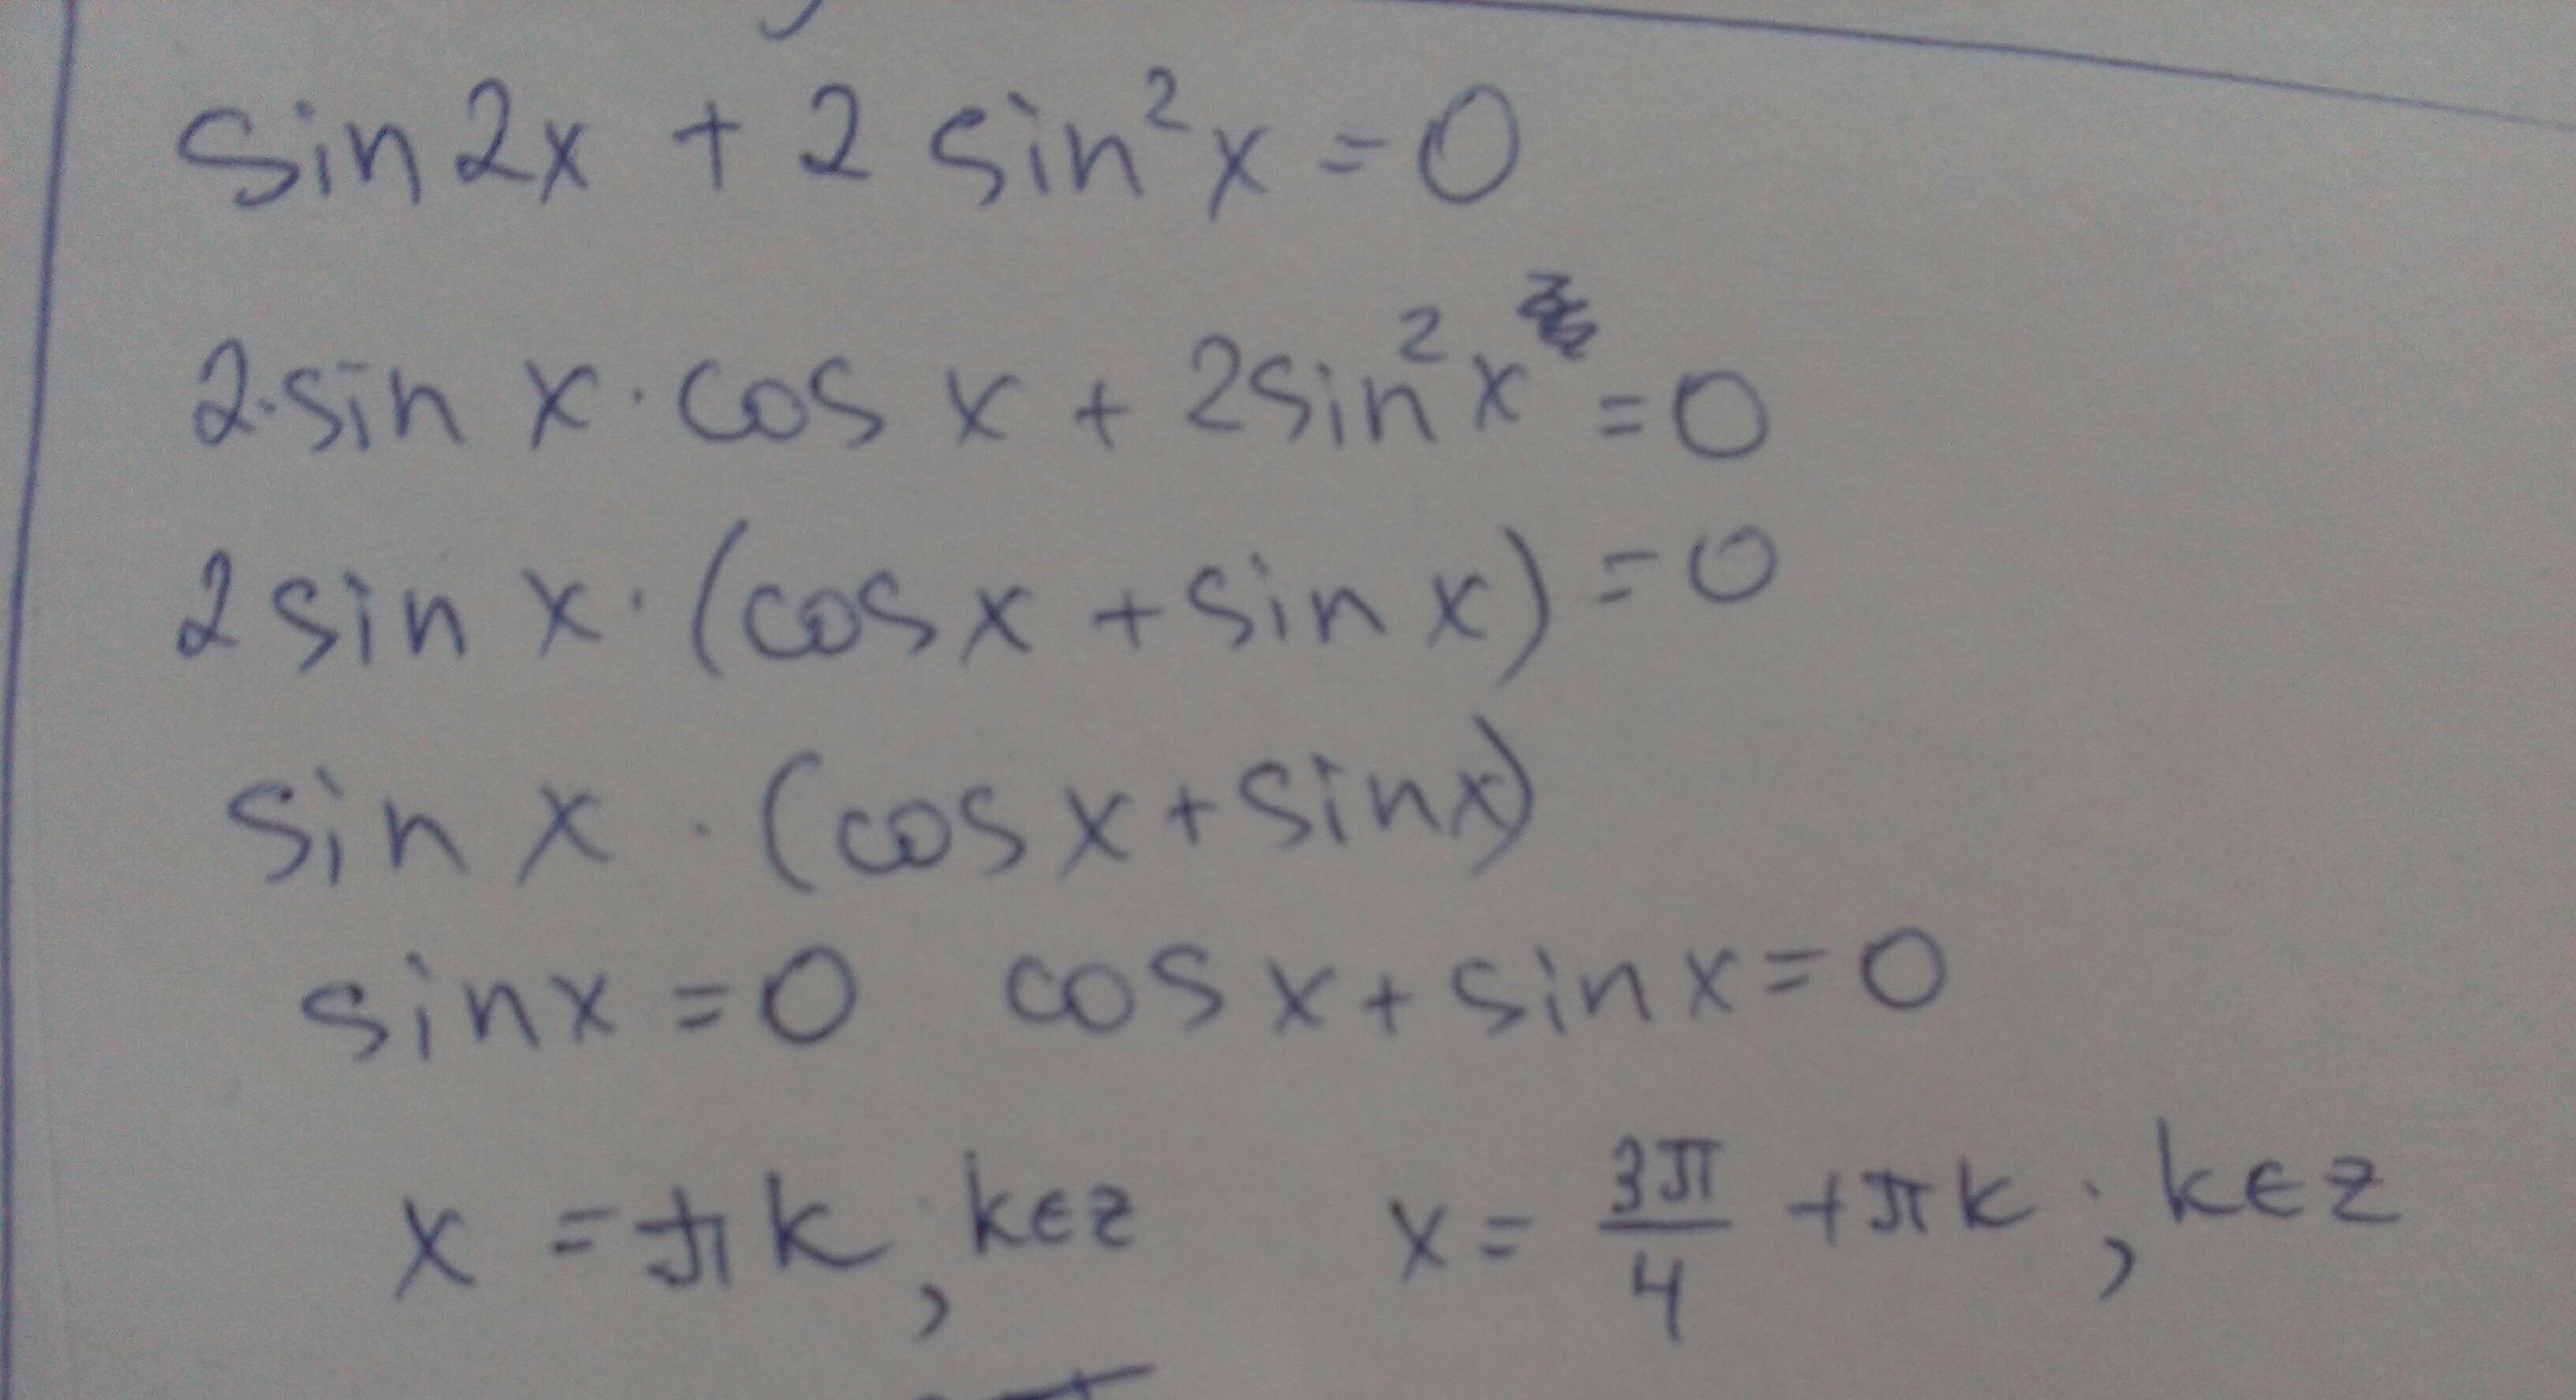 sin 2x + 2 sin²x = 0
2·sin x · cos x + 2sin²x = 0
2 sin x · (cos x + sin x) = 0
sin x · (cos x + sin x)
sin x = 0 cos x + sin x = 0
x = πk, k∈z x = 3π/4 + πk; k∈z